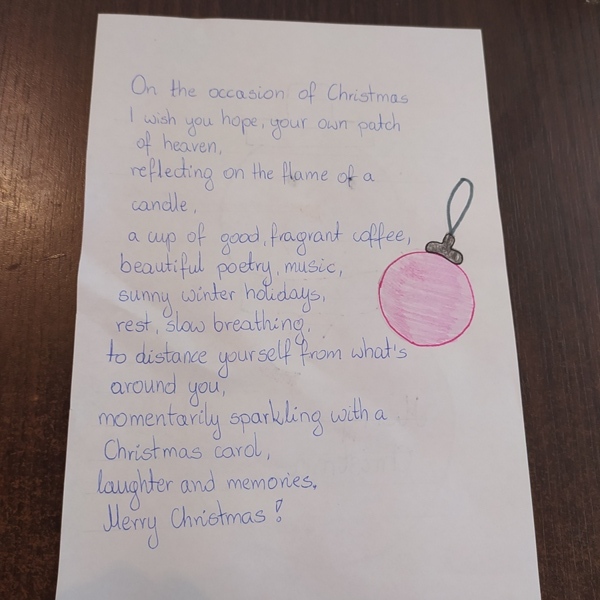 On the occasion of Christmas
I wish you hope, your own patch
of heaven,
reflecting on the flame of a
candle,
a cup of good, fragrant coffee,
beautiful poetry, music,
sunny winter holidays,
rest, slow breathing,
to distance yourself from what's
around you,
momentarily sparkling with a
Christmas carol,
laughter and memories.
Merry Christmas!